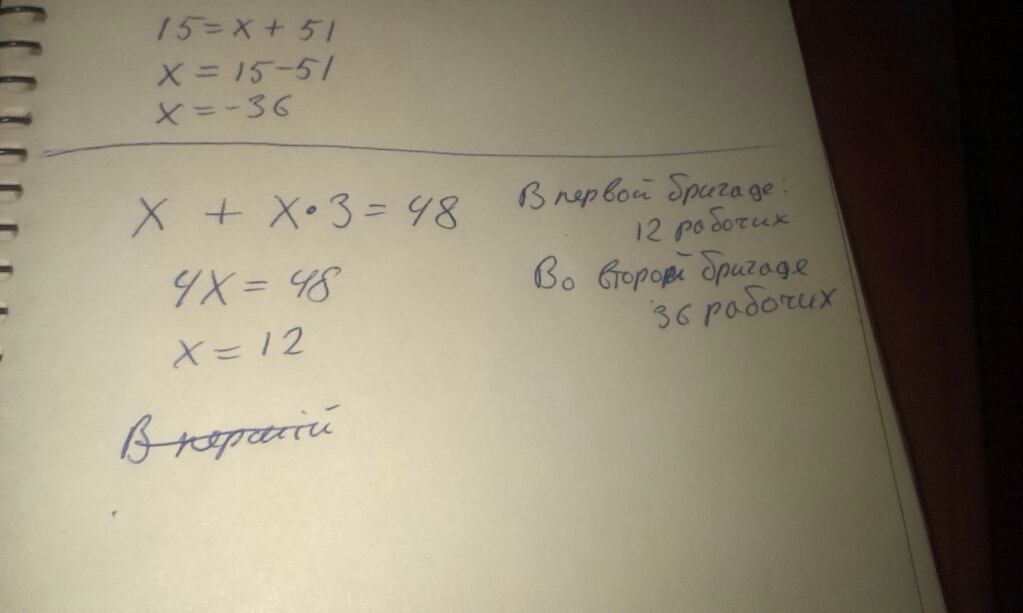 15=x+51
x=15-51
x=-36
x + x·3=48
4x=48
x=12
В першій
В первой бригаде:
12 рабочих
Во второй бригаде
36 рабочих